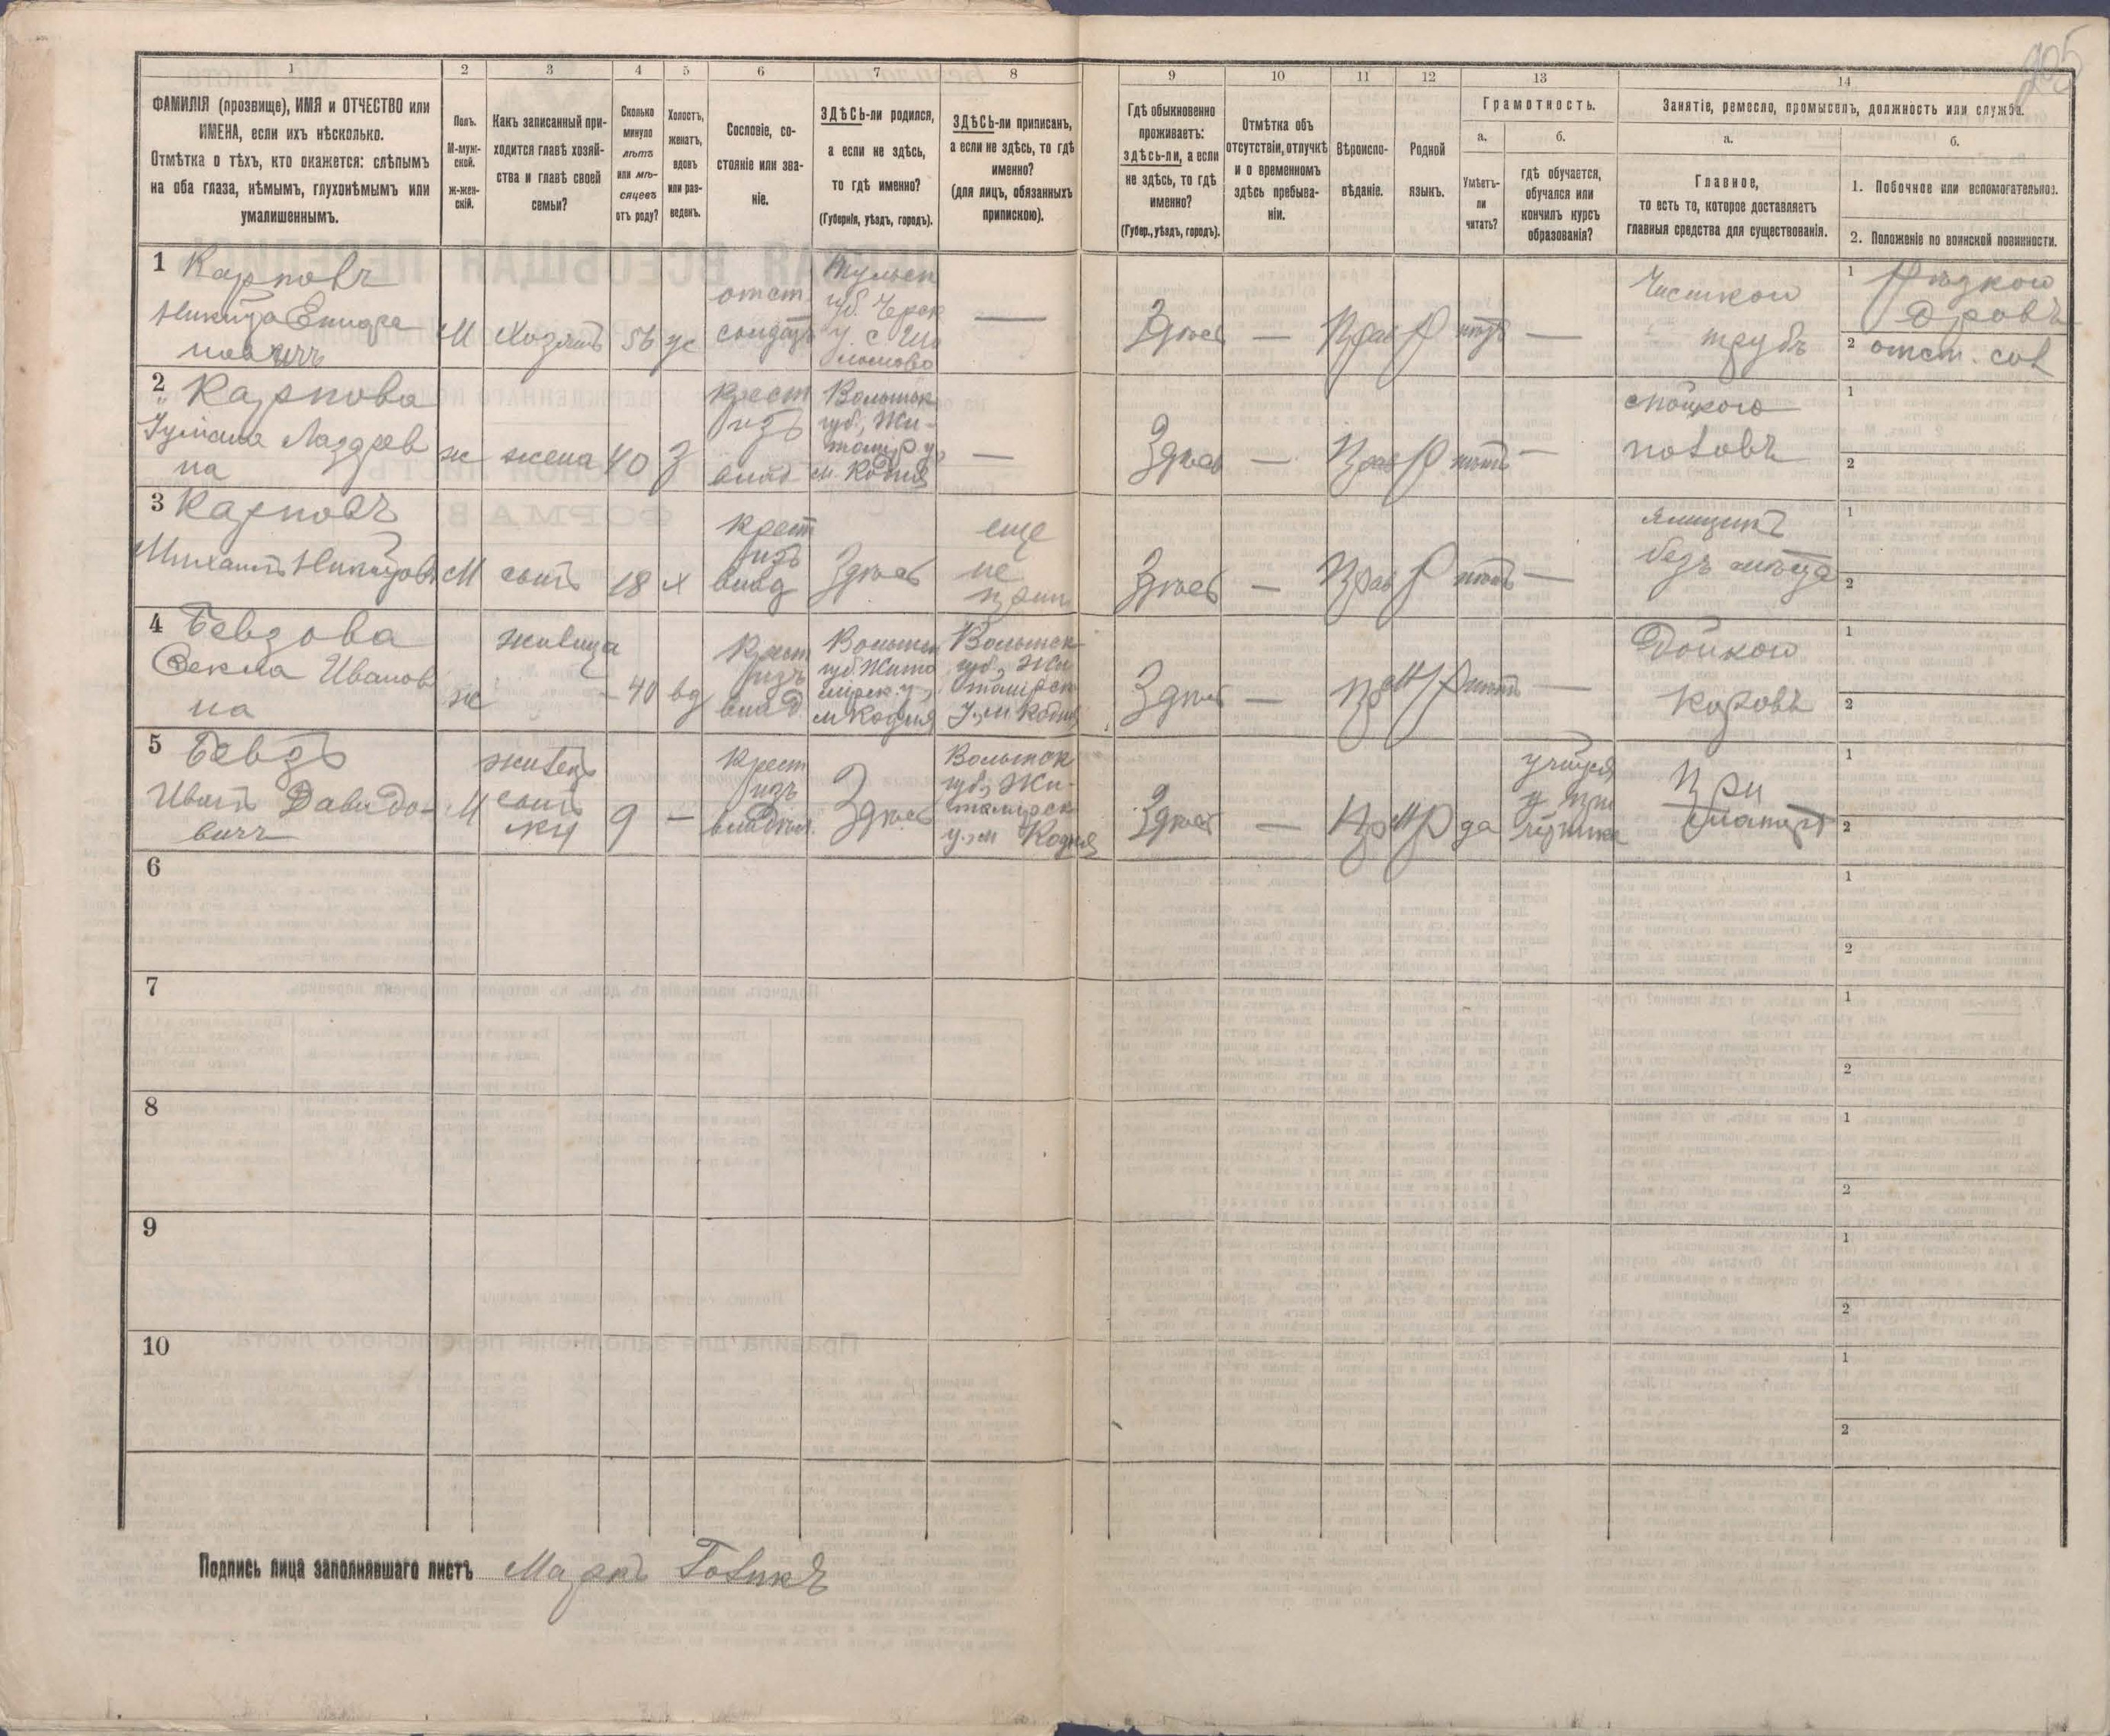 205
1 2 3 4 5 6 7 8 9 10 11 12 13 14
ФАМИЛІЯ (прозвище), ИМЯ и ОТЧЕСТВО или
ИМЕНА, если ихъ нѣсколько.
Отмѣтка о тѣхъ, кто окажется: слѣпымъ
на оба глаза, нѣмымъ, глухонѣмымъ или
умалишеннымъ.
Полъ.
М-муж-
ской.
ж-жен-
скій.
Какъ записанный при-
ходится главѣ хозяй-
ства и главѣ своей
семьи?
Сколько
минуло
лѣтъ
или мѣ-
сяцевъ
отъ роду?
Холостъ,
женатъ,
вдовъ
или раз-
веденъ.
Сословіе, со-
стояніе или зва-
ніе.
ЗДѢСЬ-ли родился,
а если не здѣсь,
то гдѣ именно?
(Губернія, уѣздъ, городъ).
ЗДѢСЬ-ли приписанъ,
а если не здѣсь, то гдѣ
именно?
(для лицъ, обязанныхъ
припискою).
Гдѣ обыкновенно
проживаетъ:
здѣсь-ли, а если
не здѣсь, то гдѣ
именно?
(Губер., уѣздъ, городъ).
Отмѣтка объ
отсутствіи, отлучкѣ
и о временномъ
здѣсь пребыва-
ніи.
Вѣроиспо-
вѣданіе.
Родной
языкъ.
Грамотность.
а.
Умѣетъ-
ли
читать?
б.
гдѣ обучается,
обучался или
кончилъ курсъ
образованія?
Занятіе, ремесло, промыселъ, должность или служба.
а.
Главное,
то есть то, которое доставляетъ
главныя средства для существованія.
б.
1. Побочное или вспомогательное.
2. Положеніе по воинской повинности.
1 Карповъ
Никита
М
Хозяинъ
56
отст.
солдатъ
губ.
—
Здѣсь
—
Прав
Р
нѣтъ
—
Чисткою
трубъ
1 Рѣзкою
Дровъ
2 отст.
2 Карпова
Лазарев
на
ж
жена
40
З
Крест
изъ
влад
Волынск
губ., Жи-
томир у,
м. Кодня
—
Здѣсь
—
Прав
Р
нѣтъ
—
половъ
1
2
3 Карповъ
Михаилъ Никитовъ
М
сынъ
18
х
Крест
изъ
влад
Здѣсь
еще
не
прип
Здѣсь
—
Прав
Р
нѣтъ
—
ямщикъ
безъ мѣста
1
2
4 Бевзова
Секла Иванов
на
ж
жилица
40
вд
Крест
изъ
влад.
Волынск
губ Жито
мірск. у,
м Кодня
Волынск
губ., Жи
томирск
у., м. Кодня
Здѣсь
—
Пр
М/Р
нѣтъ
—
Дойкою
Коровъ
1
2
5 Бевзъ
Иванъ Давидо-
вичъ
М
жилец
сынъ
9
—
Крест
изъ
Здѣсь
Волынск
губ, Жи-
томирск
у., м Кодня
Здѣсь
—
Пр
М/Р
да
учится
При
матери
1
2
6
1
2
7
1
2
8
1
2
9
1
2
10
1
2
Подпись лица заполнявшаго листъ Маркъ